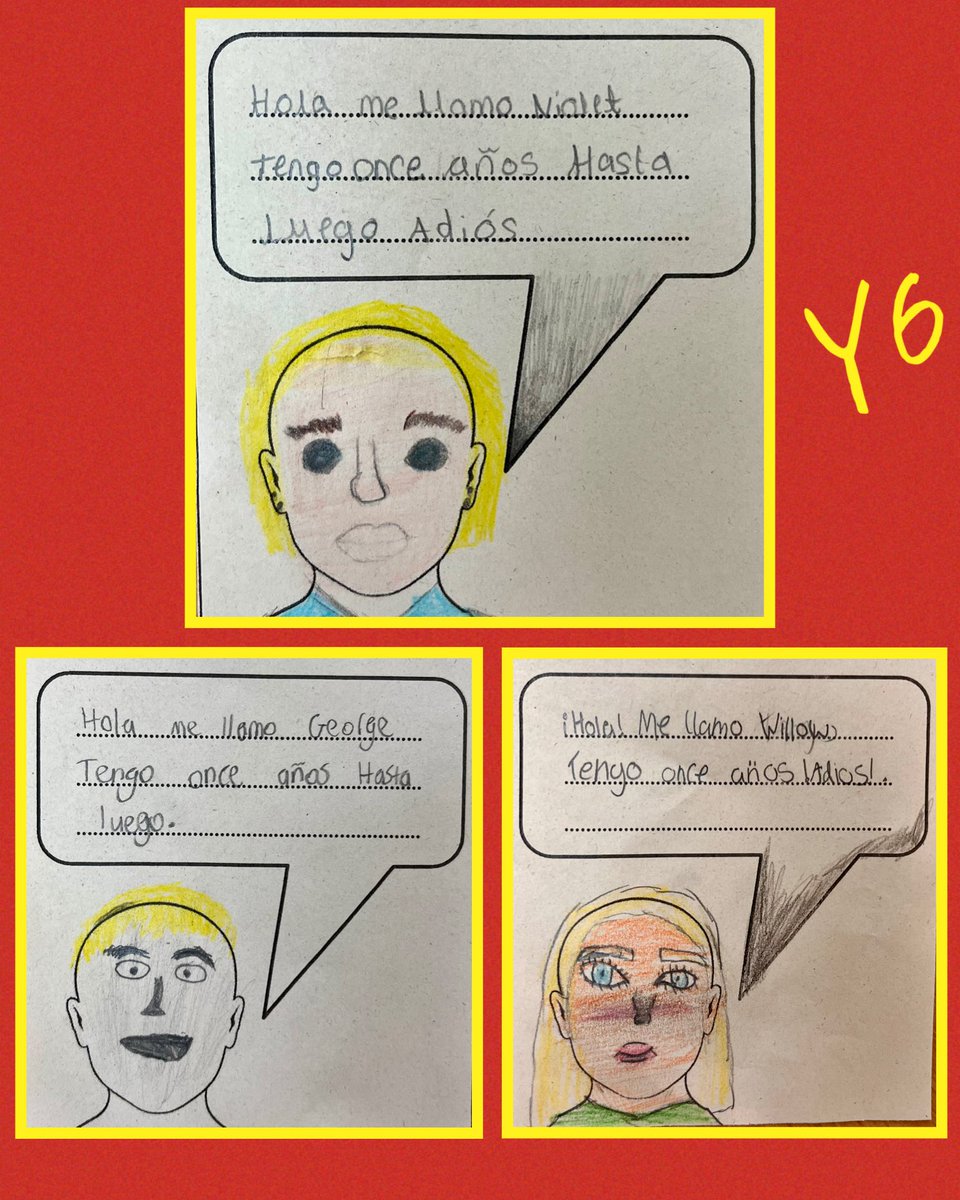 Hola me llamo Violet
Tengo once años Hasta
Luego Adiós
Y6
Hola me llamo George
Tengo once años Hasta
luego.
¡Hola! Me llamo Willow
Tengo once años ¡Adios!.